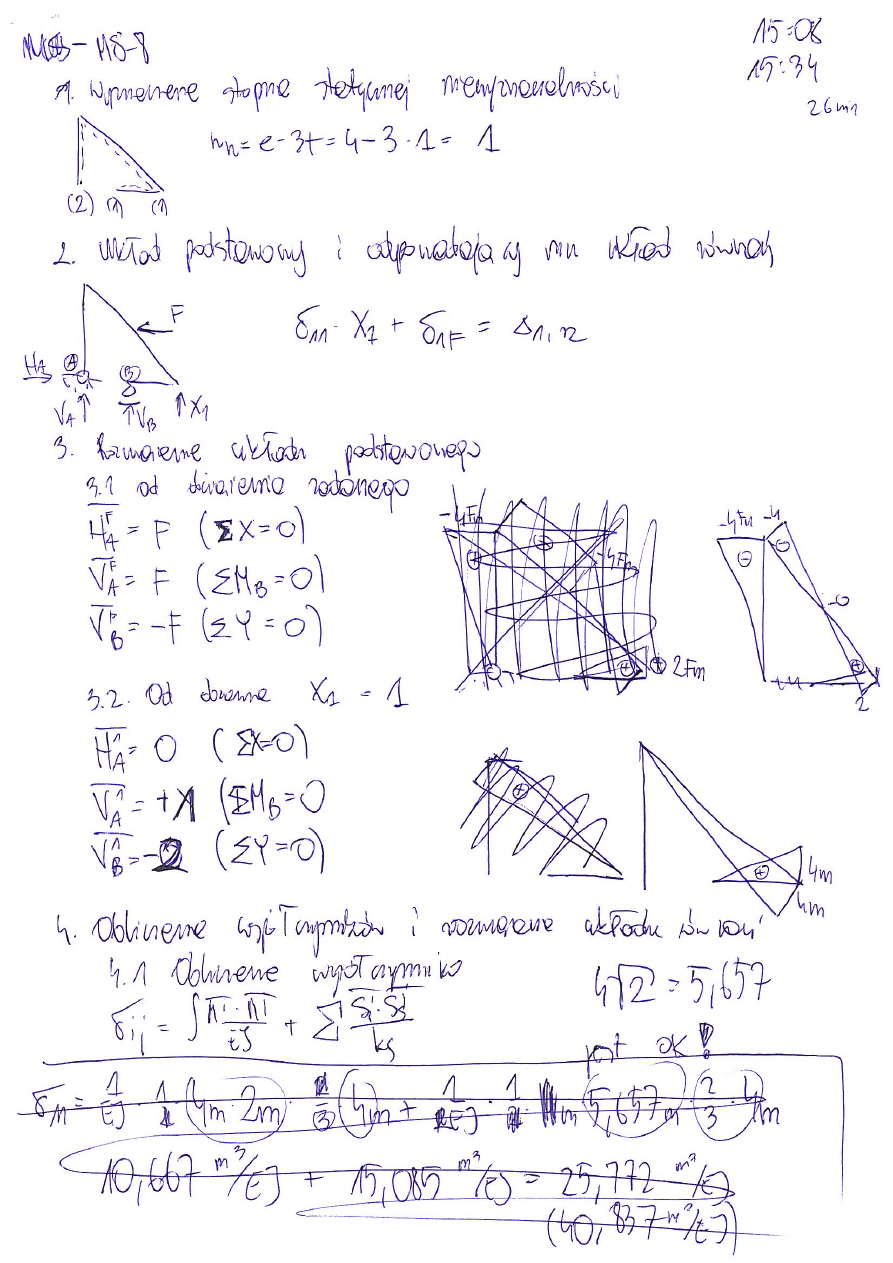 15:08
15:34
26 min
MS-8
1. Wyznaczenie stopnia statycznej niewyznaczalności
n_h = e - 3t = 4 - 3 · 1 = 1
(2) (1) (1)
2. Układ podstawowy i odpowiadający mu układ równań
F
δ₁₁ · X₁ + δ₁F = Δ₁,r
H_A A B
V_A V_B X₁
3. Rozwiązanie układu podstawowego
3.1 od obciążenia zadanego
H_A^F = F (ΣX=0)
V_A^F = F (ΣM_B=0)
V_B^F = -F (ΣY=0)
-4Fm -4Fm 2Fm
-4Fm -4 -0 2
3.2. Od obciążenia X₁ = 1
H_A^1 = 0 (ΣX=0)
V_A^1 = +1 (ΣM_B=0
V_B^1 = -2 (ΣY=0)
4m
4m
4. Obliczenie współczynników i rozwiązanie układu równań
4.1 Obliczenie współczynników
4√2 = 5,657
jest ok!
10,667 m³/EJ + 15,085 m³/EJ = 25,772 m³/EJ
(40,837 m³/EJ)